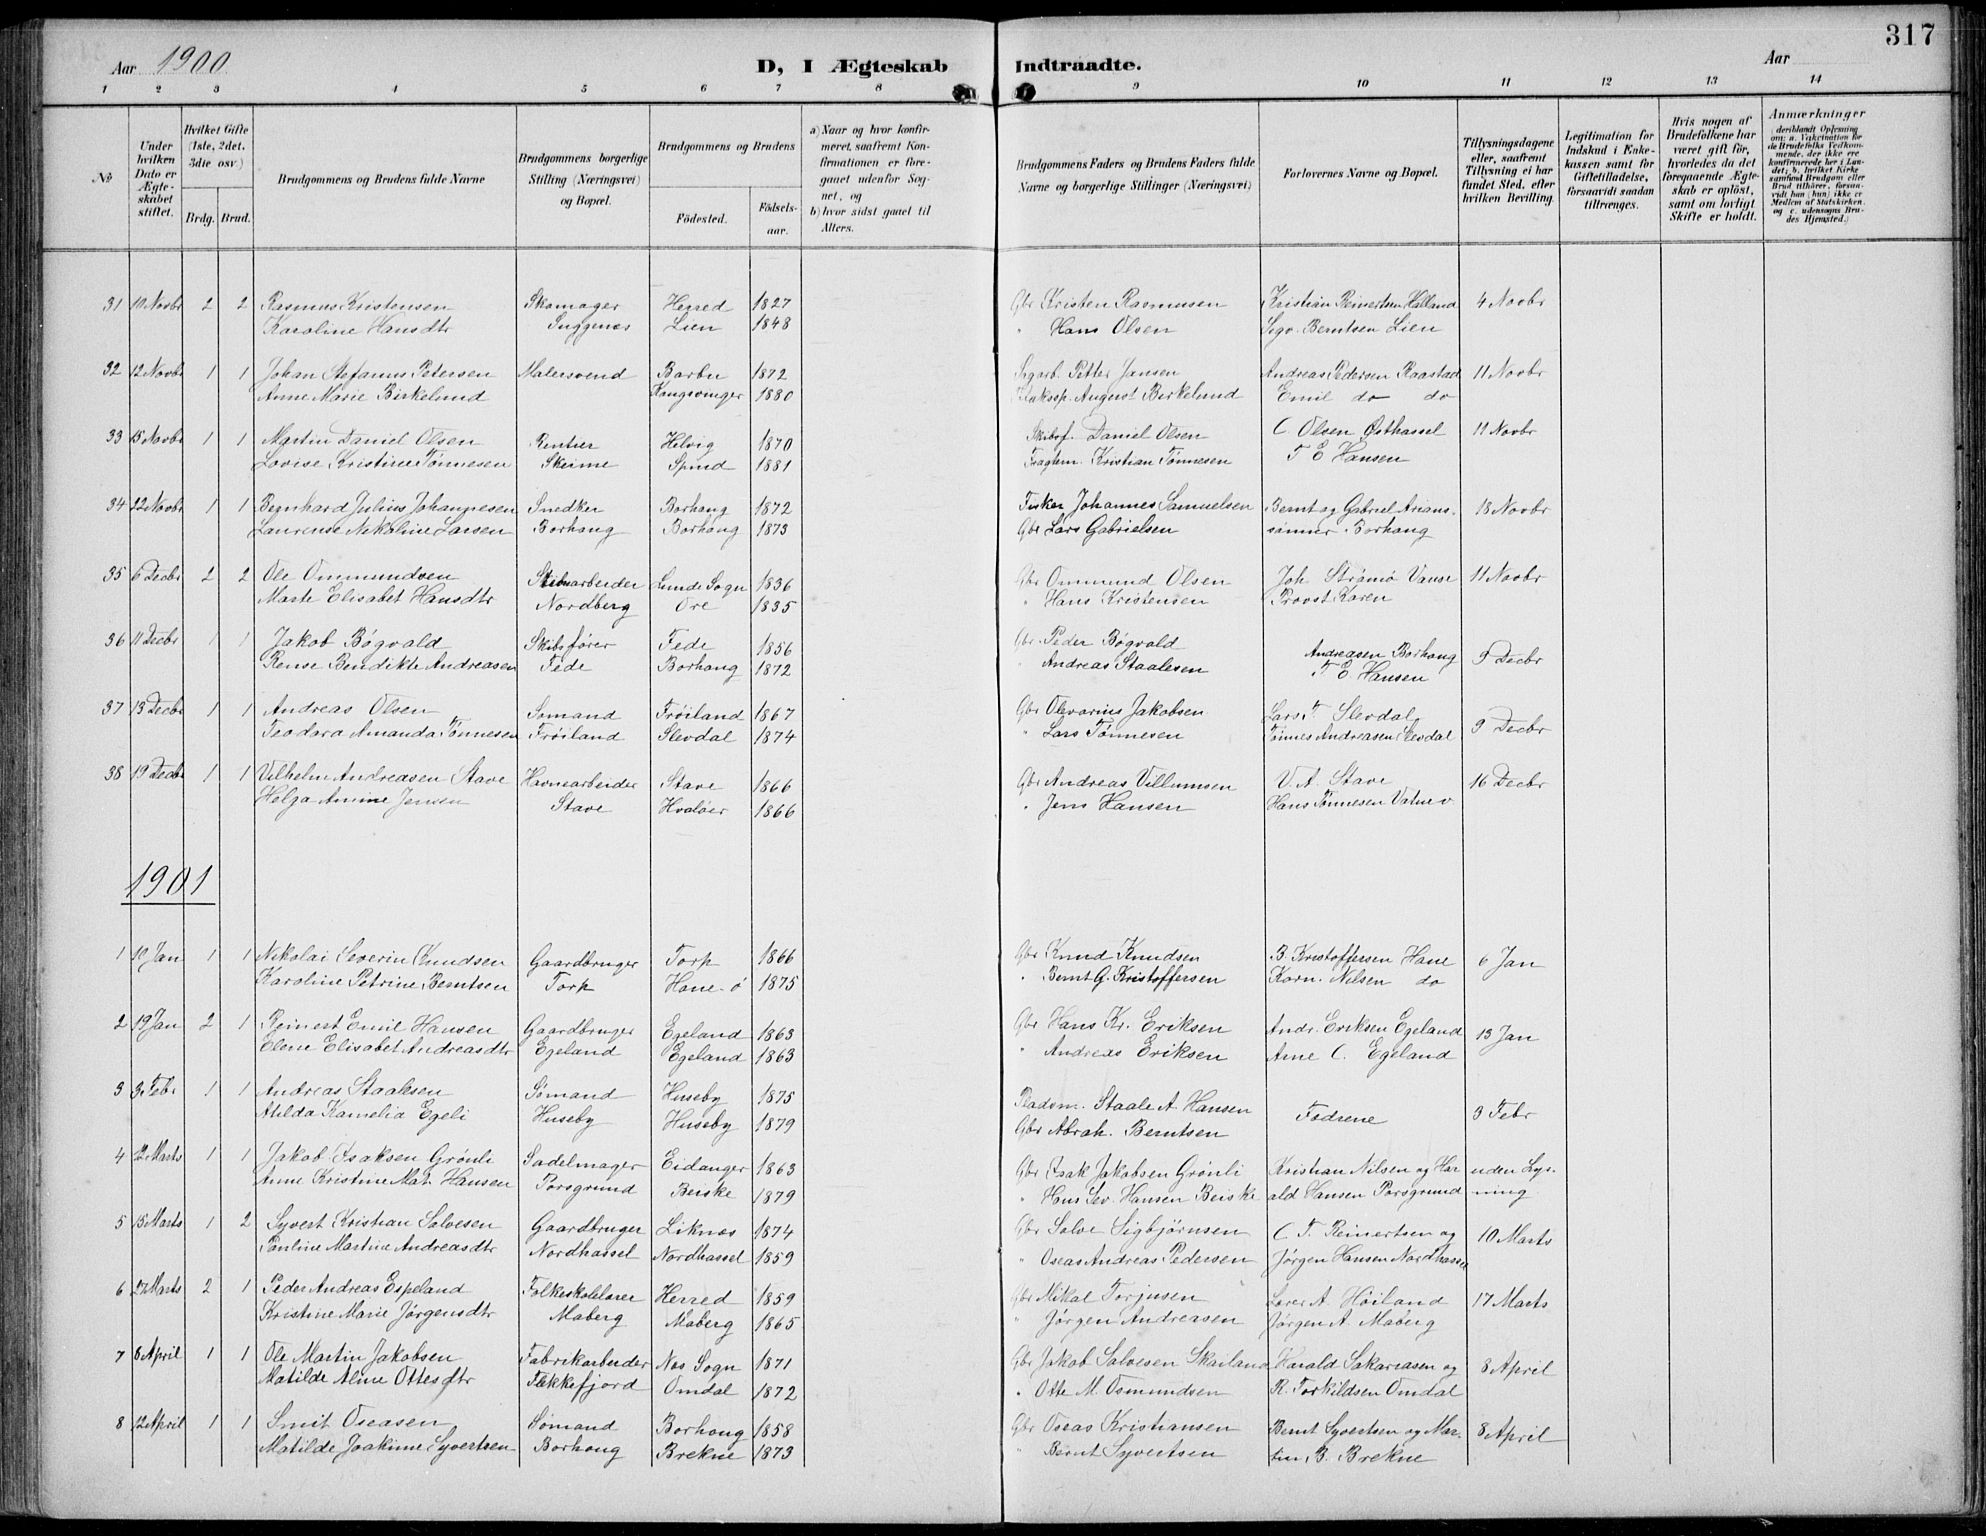 317
Aar 1900 D, I Ægteskab Indtraadte. Aar
1 2 3 4 5 6 7 8 9 10 11 12 13 14
No
Under hvilken Dato er Ægteskabet stiftet.
Hvilket Gifte (1ste, 2det. 3die osv.)
Brdg. Brud.
Brudgommens og Brudens fulde Navne
Brudgommens borgerlige Stilling (Næringsvei) og Bopæl.
Brudgommens og Brudens
Födested. Födsels-aar.
a) Naar og hvor konfirmeret, saafremt Konfirmationen er foregaaet udenfor Sognet, og
b) hvor sidst gaaet til Alters.
Brudgommens Faders og Brudens Faders fulde Navne og borgerlige Stillinger (Næringsvei)
Forlovernes Navne og Bopæl.
Tillysningsdagene eller, saafremt Tillysning ei har fundet Sted, efter hvilken Bevilling.
Legitimation for Indskud i Enkekassen samt for Giftetilladelse, forsaavidt saadan tiltrænges.
Hvis nogen af Brudefolkene har været gift för, hvorledes da det foregaaende Ægteskab er oplöst, samt om lovligt Skifte er holdt.
Anmærkninger
(deriblandt Oplysning om: a. Vakcination for de Brudefolks Vedkommende, der ikke ere konfirmerede her i Landet; b. hvilket Kirkesamfund Brudgom eller Brud tilhörer, forsaavidt han (hun) ikke er Medlem af Statskirken, og c. udensogns Brudes Hjemsted.)
31 10 Novbr 2 2 Rasmus Kristensen Skomager Herred 1827 Gbr Kristen Rasmusen Kristian Reinertsen Halland 4 Novbr
Karoline Hansdtr Lien 1848 " Hans Olsen Sigv. Berntsen Lien
32 12 Novbr 1 1 Johan Stefanus Petersen Malersvend Barbu 1872 Petter Jansen Andreas Pedersen Raastad 11 Novbr
Anne Marie Birkelund Kongsvinger 1880 August Birkelund Emil do do
33 15 Novbr 1 1 Martin Daniel Olsen Rentier Helvig 1870 Skibsf. Daniel Olsen C. Olsen Østhassel 11 Novbr
Lovise Kristine Tønnesen Skeime Spind 1881 Kristian Tønnesen T E Hansen
34 22 Novbr 1 1 Bernhard Julius Johannesen Snedker Borhaug 1872 Fisker Johannes Samuelsen Bernt og Gabriel Arians- 18 Novbr
Laurense Nikoline Larsen Borhaug Borhaug 1873 Gbr Lars Gabrielsen sønner Borhaug
35 6 Decbr 2 2 Ole Ommundsen Stenarbeider Lunde Sogn 1836 Gbr Ommund Olsen Joh Strømø Vanse 11 Novbr
Marte Elisabet Hansdtr Nordberg Ore 1835 " Hans Kristensen Provst Koren
36 11 Decbr 1 1 Jakob Bøgvald Skibsfører Fede 1856 Gbr. Peder Bøgvald Andreasen Borhaug 9 Decbr
Rense Bendikte Andreasen Fede Borhaug 1872 " Andreas Staalesen T E Hansen
37 13 Decbr 1 1 Andreas Olsen Sømand Frøiland 1867 Gbr Olevarius Jakobsen Lars T Slevdal 9 Decbr
Teodara Amanda Tønnesen Frøiland Slevdal 1874 " Lars Tønnesen Tønnes Andreasen Slevdal
38 19 Decbr 1 1 Vilhelm Andreasen Stave Havnearbeider Stave 1866 Gbr Andreas Villumsen V. A. Stave 16 Decbr
Helga Amine Jensen Stave Hvaløer 1866 " Jens Hansen Hans Tønnesen Vatne
1901
1 10 Jan 1 1 Nikolai Severin Knudsen Gaardbruger Torp 1866 Gbr Knud Knudsen B. Kristoffersen Hane 6 Jan
Karoline Petrine Berntsen Torp Hane-ø 1875 " Bernt G. Kristoffersen Korn. Nilsen do
2 19 Jan 2 1 Reinert Emil Hansen Gaardbruger Egeland 1863 Gbr Hans Kr. Eriksen Andr. Eriksen Egeland 13 Jan
Elene Elisabet Andreasdtr Egeland Egeland 1863 " Andreas Eriksen Arne C. Egeland
3 3 Febr 1 1 Andreas Staalesen Sømand Huseby 1875 Pladsm. Staale A Hansen Fedrene 3 Febr
Alida Kamelia Egeli Huseby Huseby 1879 Gbr Abrah. Berntsen
4 12 Marts 1 1 Jakob Isaksen Grönli Sadelmager Eidanger 1863 Gbr Isak Jakobsen Grönli Kristian Nilsen og Har- uden Lys-
Anne Kristine Mat. Hansen Porsgrund Beiske 1879 " Hans Sev. Hansen Beiske ald Hansen Porsgrund ning
5 15 Marts 1 2 Syvert Kristian Salvesen Gaardbruger Liknes 1874 Gbr Salve Sigbjørnsen C. T. Reinertsen og 10 Marts
Pauline Martine Andreasdtr Nordhassel Nordhassel 1859 " Oseas Andreas Pedersen Jørgen Hansen Nordhassel
6 27 Marts 2 1 Peder Andreas Espeland Folkeskolelærer Herred 1859 Gbr Mikal Torjusen Lærer A. Høiland 17 Marts
Kristine Marie Jørgensdtr Maberg Maberg 1865 " Jørgen Andreasen Jørgen A. Maberg
7 8 April 1 1 Ole Martin Jakobsen Fabrikarbeider Nes Sogn 1871 Gbr Jakob Salvesen Skailand Harald Sakariasen og 8 April
Matilde Aline Ottesdtr Flekkefjord Omdal 1872 " Otte M. Osmundsen R. Torkildsen Omdal
8 12 April 1 1 Smit Oseasen Sømand Borhaug 1858 Gbr Oseas Kristiansen Bernt Syvertsen og Mar- 8 April
Matilde Joakime Syvertsen Borhaug Brekne 1873 " Bernt Syvertsen tin B. Brekne